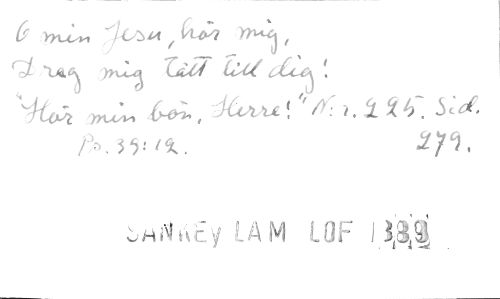 O min Jesu, hör mig,
Drag mig tätt till dig!
"Hör min bön, Herre!" N:r. 225. Sid.
Ps. 39:12. 279.
SANKEY LAM LOF 1889